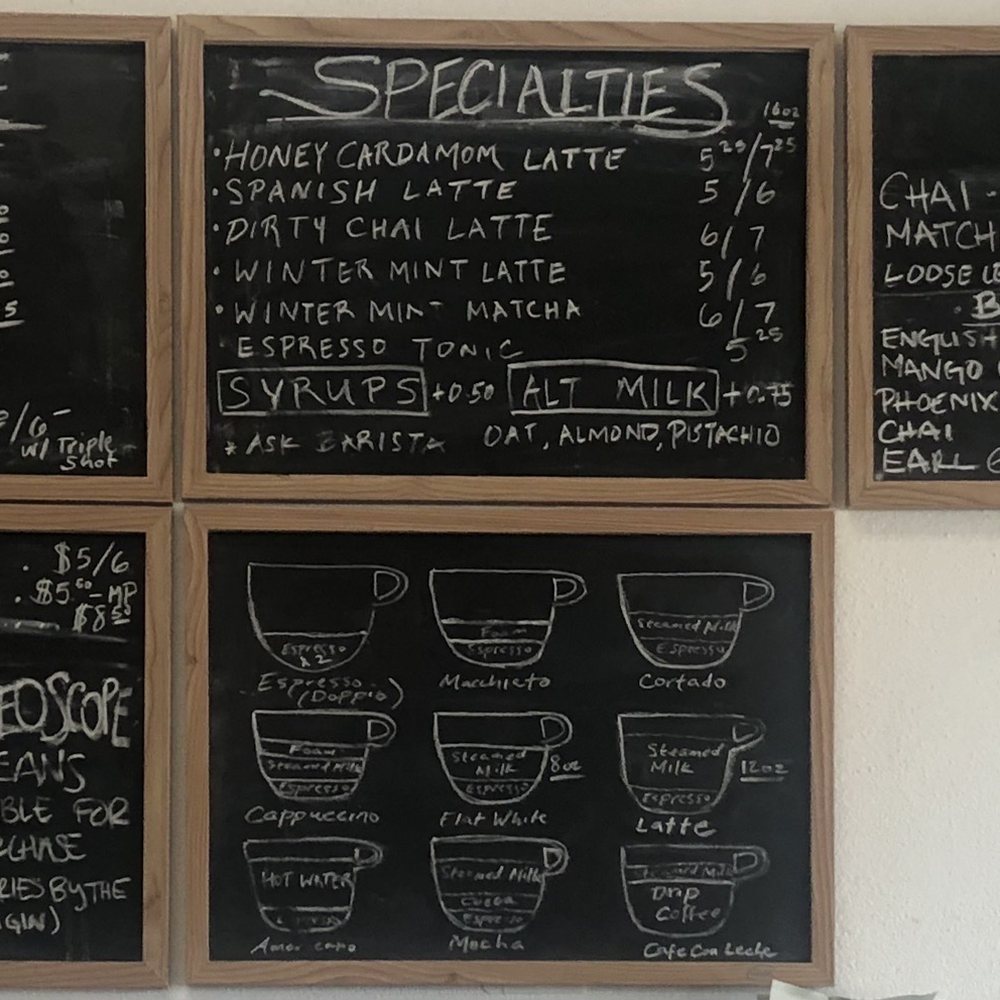 SPECIALTIES
16oz
• HONEY CARDAMOM LATTE 5 25/7 25
• SPANISH LATTE 5/6
• DIRTY CHAI LATTE 6/7
• WINTER MINT LATTE 5/6
• WINTER MINT MATCHA 6/7
ESPRESSO TONIC 5 25
SYRUPS +0.50 ALT MILK +0.75
* ASK BARISTA OAT, ALMOND, PISTACHIO
/6-
w/ Triple
Shot
CHAI -
MATCH
LOOSE LE
B
ENGLISH
MANGO
PHOENIX
CHAI
EARL G
. $5/6
. $5.50 - MP
$8 50
EOSCOPE
EANS
BLE FOR
CHASE
RIES BY THE
GIN)
Espresso
x2
Espresso
(Doppio)
Foam
Espresso
Macchiato
Steamed Milk
Espresso
Cortado
Foam
Steamed Milk
Espresso
Cappuccino
Steamed
Milk
8oz
Espresso
Flat White
Steamed
Milk
12oz
Espresso
Latte
HOT WATER
Espresso
Americano
Steamed Milk
Cocoa
Espresso
Mocha
Steamed Milk
Drip
Coffee
Cafe Con Leche